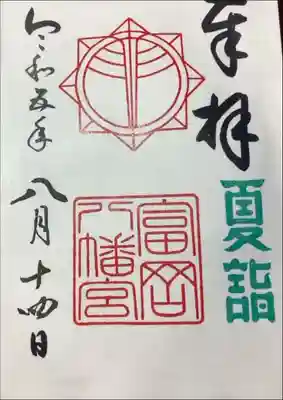 奉拝
夏詣
富岡
八幡宮
令和五年
八月十四日